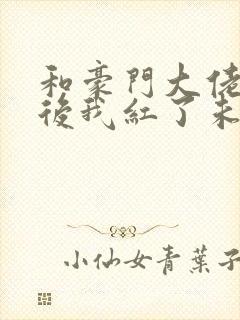 和豪門大佬
後我紅了未
小仙女青葉子